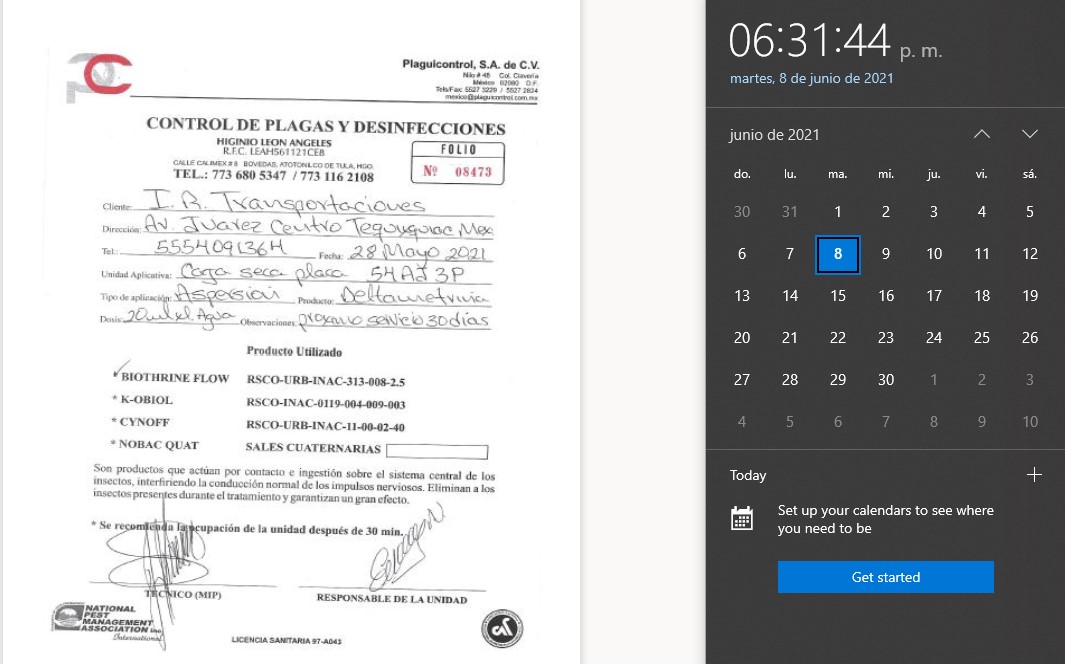 PC
Plaguicontrol, S.A. de C.V.
Nilo # 48 Col. Clavería
México 02080 D.F.
Tels/Fax: 5527 3229 / 5527 2834
mexico@plaguicontrol.com.mx
CONTROL DE PLAGAS Y DESINFECCIONES
HIGINIO LEON ANGELES
R.F.C. LEAH561121CE8
CALLE CALIMEX # 8 BOVEDAS, ATOTONILCO DE TULA, HGO.
TEL.: 773 680 5347 / 773 116 2108
FOLIO
Nº 08473
Cliente: I. R. Transportaciones
Dirección: Av. Juarez Centro Tequixquiac Mex
Tel.: 5554091364 Fecha: 28 Mayo 2021
Unidad Aplicativa: Caja seca placa 54AJ3P
Tipo de aplicación: Aspersión Producto: Deltametrivia
Dosis: 20ml x l Agua Observaciones: proximo servicio 30 días
Producto Utilizado
BIOTHRINE FLOW RSCO-URB-INAC-313-008-2.5
* K-OBIOL RSCO-INAC-0119-004-009-003
* CYNOFF RSCO-URB-INAC-11-00-02-40
* NOBAC QUAT SALES CUATERNARIAS
Son productos que actúan por contacto e ingestión sobre el sistema central de los
insectos, interfiriendo la conducción normal de los impulsos nerviosos. Eliminan a los
insectos presentes durante el tratamiento y garantizan un gran efecto.
* Se recomienda la ocupación de la unidad después de 30 min.
TÉCNICO (MIP)
RESPONSABLE DE LA UNIDAD
NATIONAL
PEST
MANAGEMENT
ASSOCIATION Inc
International
LICENCIA SANITARIA 97-A043
06:31:44 p. m.
martes, 8 de junio de 2021
junio de 2021
do. lu. ma. mi. ju. vi. sá.
30 31 1 2 3 4 5
6 7 8 9 10 11 12
13 14 15 16 17 18 19
20 21 22 23 24 25 26
27 28 29 30 1 2 3
4 5 6 7 8 9 10
Today
Set up your calendars to see where
you need to be
Get started